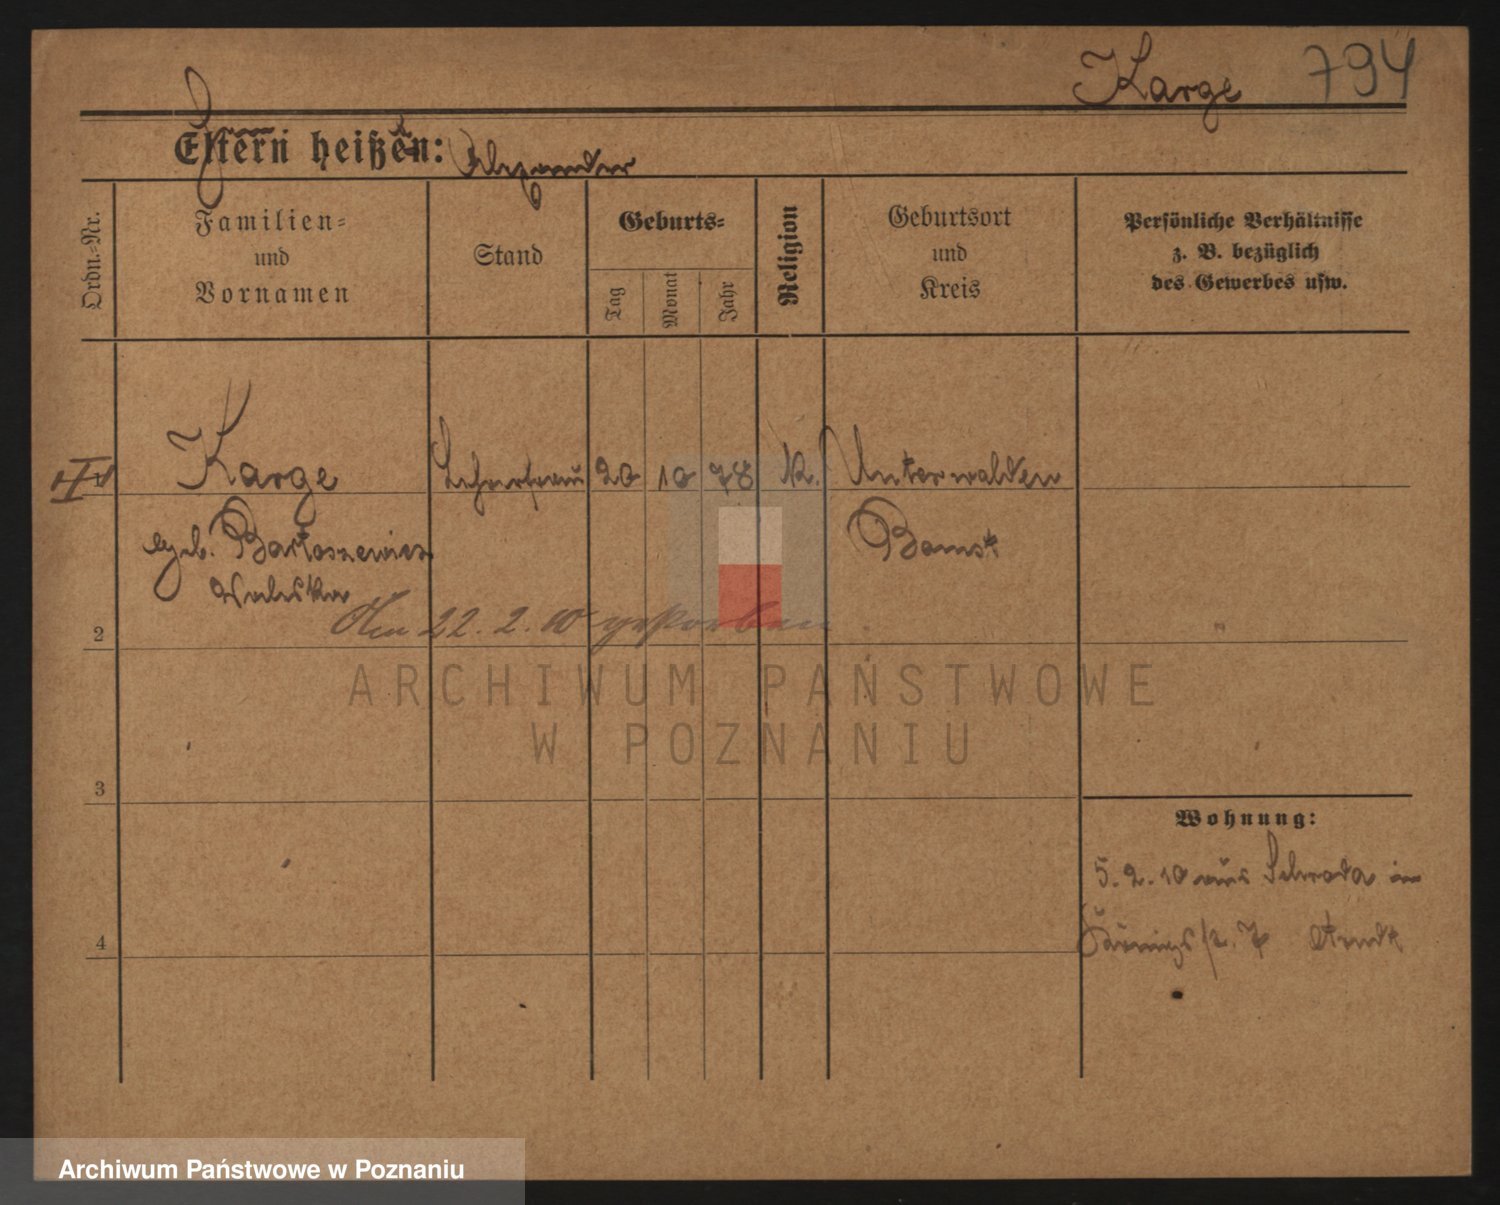 Karge 794
Eltern heißen: Alexander
Ordn.-Nr.
Familien-
und
Vornamen
Stand
Geburts-
Tag
Monat
Jahr
Religion
Geburtsort
und
Kreis
Persönliche Verhältnisse
z. B. bezüglich
des Gewerbes usw.
Karge Lehrerfrau 20 10 78 K. Unterwalden
geb. Bartoszewicz Bomst
Valeska
Am 22. 2. 10 gestorben
2
ARCHIWUM PAŃSTWOWE
W POZNANIU
3
Wohnung:
5. 2. 10 aus Schroda in
4
Königstr. 7 Arndt
Archiwum Państwowe w Poznaniu